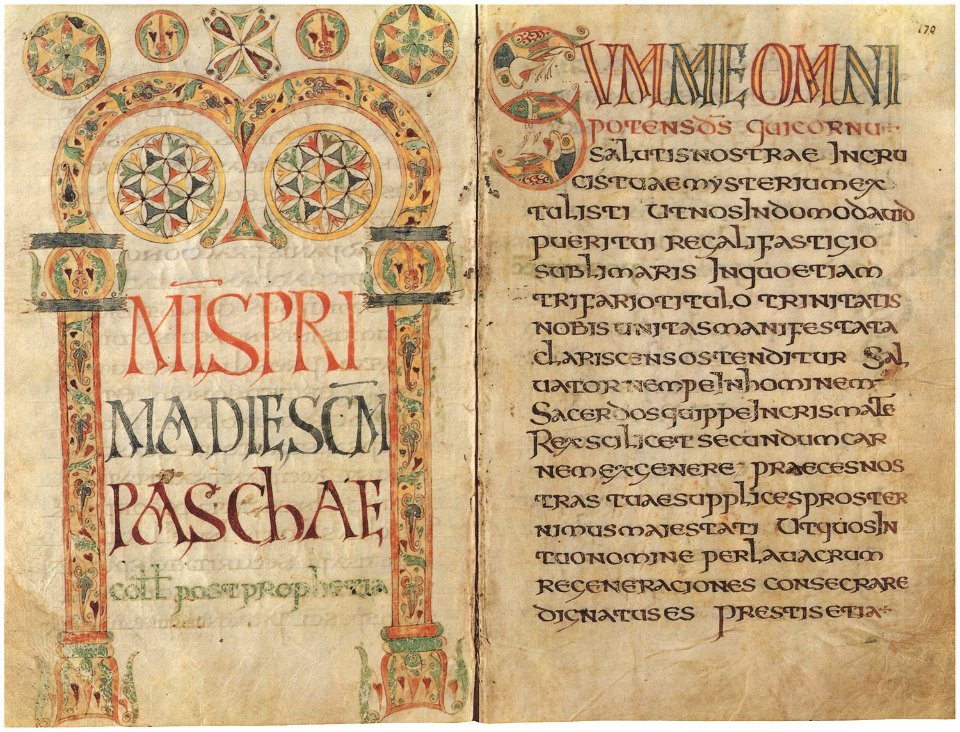 MĪSPRI
MADIESCM̄
PASChAE
coħ postprophetia
170
SUMMEOMNI
POTENSDS̄ QUICORNU
SALUTISNOSTRAE INCRU
CISTUAEMYSTERIUMEX
TULISTI UTNOSINDOMODAUID
PUERITUI REGALIFASTIGIO
SUBLIMARIS INQUOETIAM
TRIFARIOTITULO TRINITATIS
NOBISUNITASMANIFESTATA
CLARISCENSOSTENDITUR SAL
UATORNEMPEINHOMINEM
SACERDOSQUIPPEINCRISMATE
REXSCILICETSECUNDUMCAR
NEMEXGENERE PRAECESNOS
TRAS TUAESUPPLICESPROSTER
NIMUSMAJESTATI UTQUOSIN
TUONOMINE PERLAUACRUM
REGENERACIONES CONSECRARE
DIGNATUSES PRESTISETIA